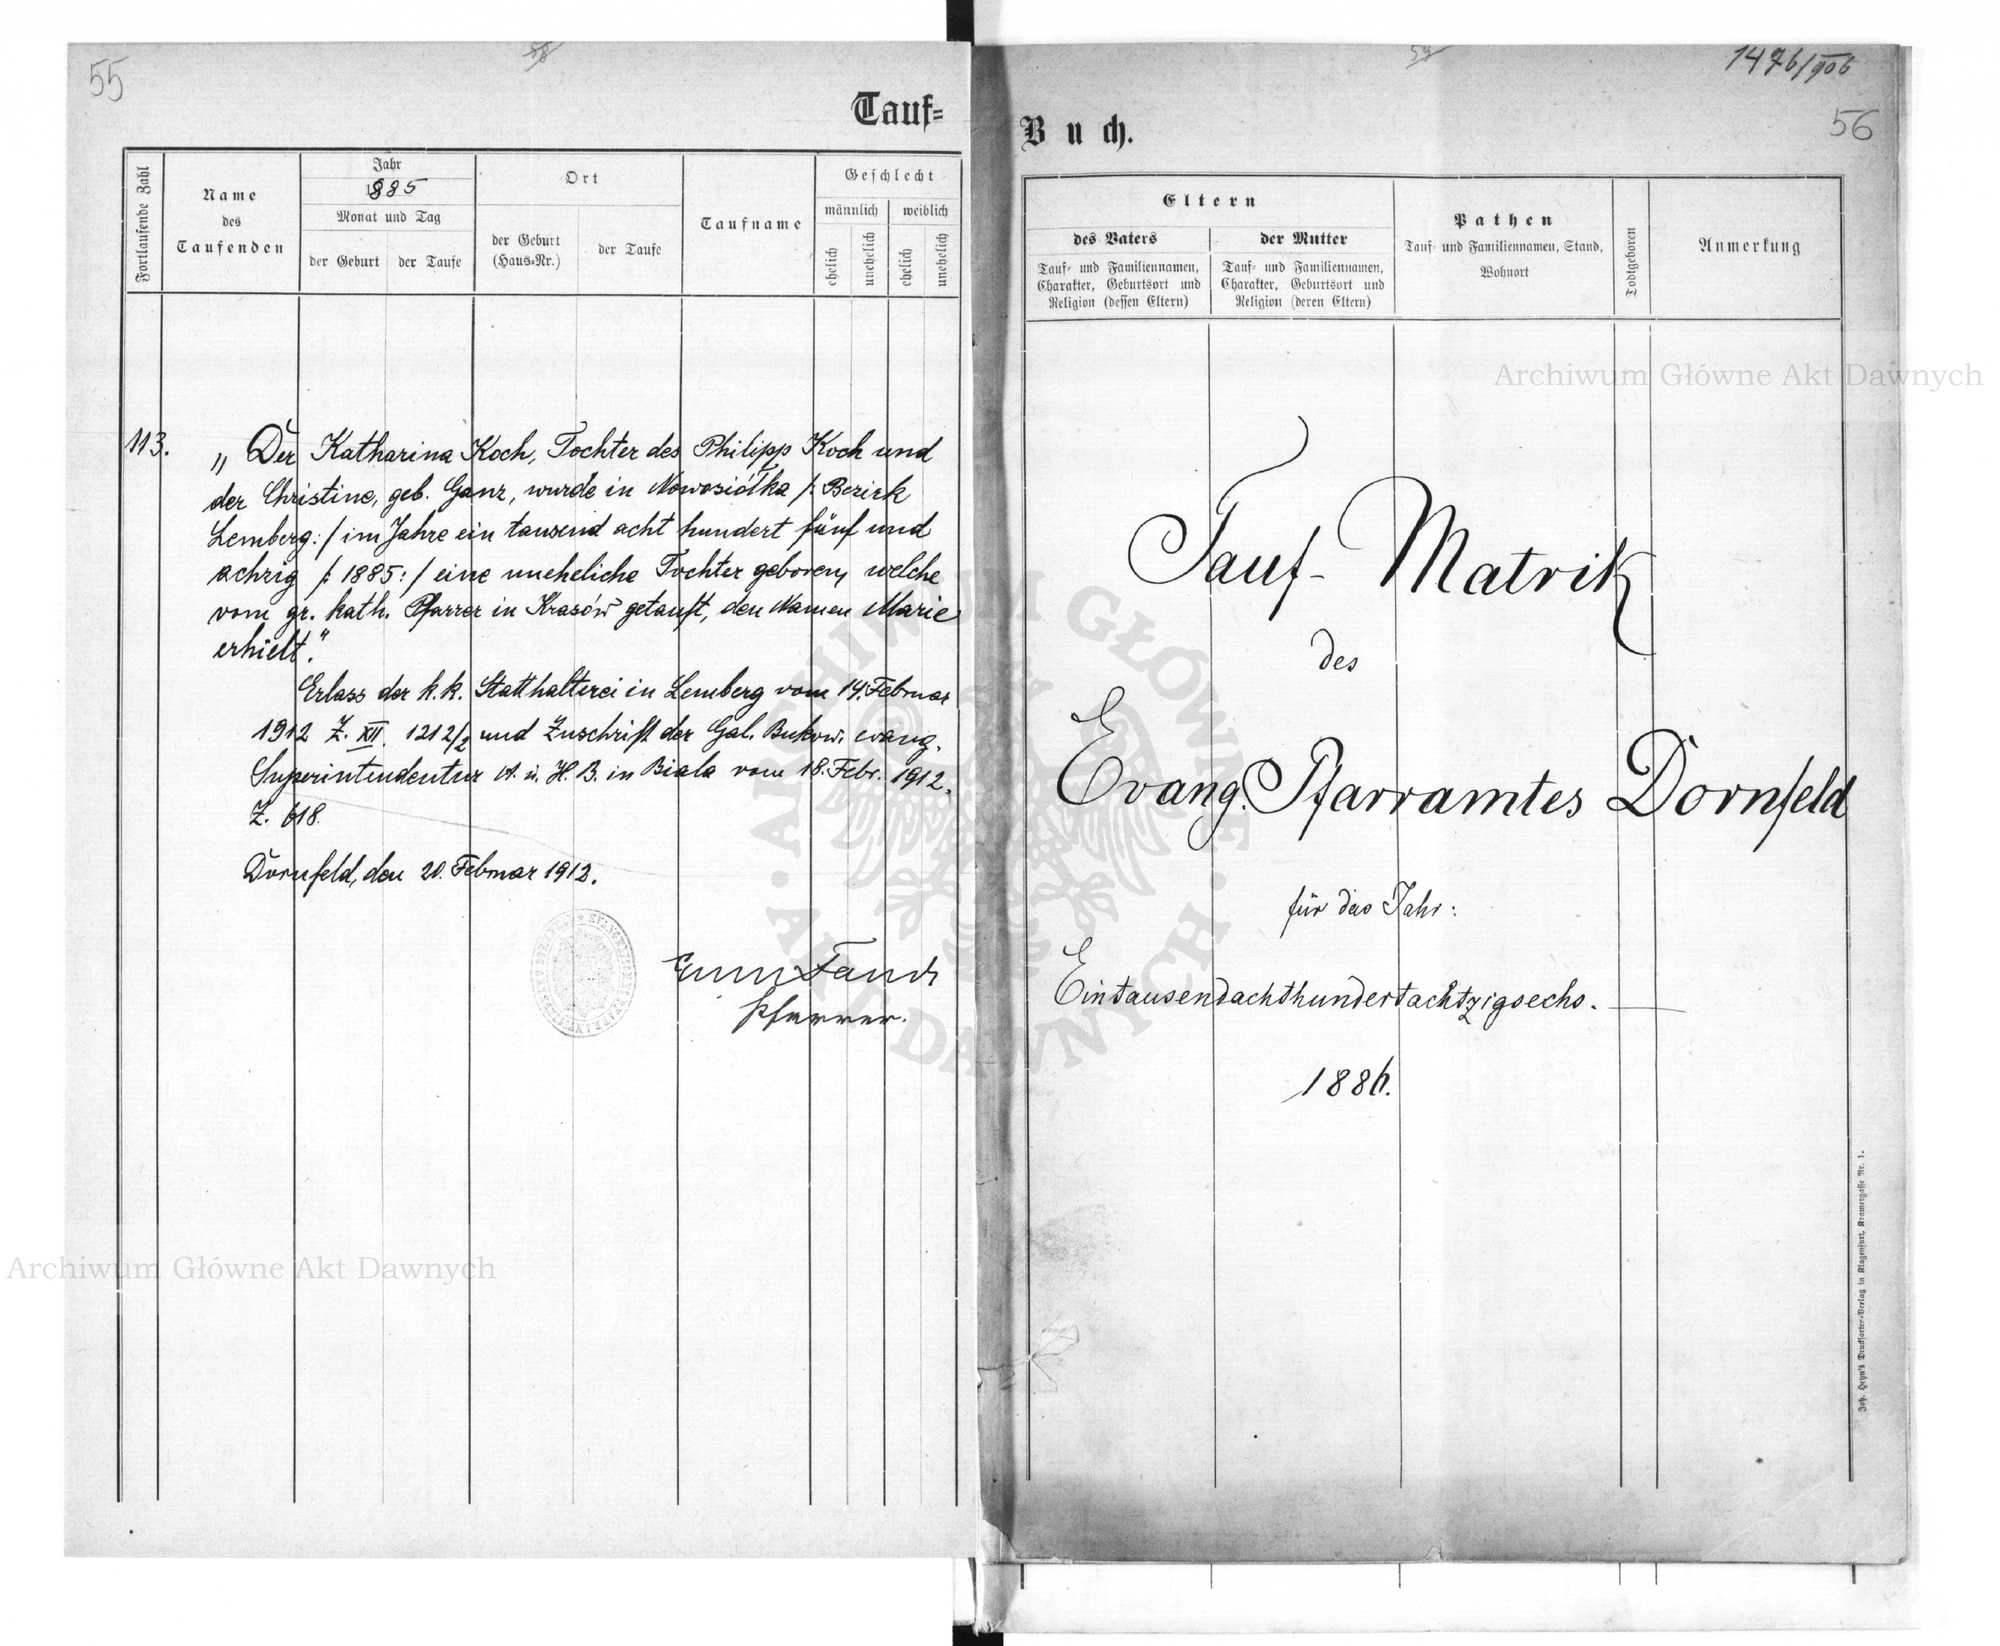 55
58
Tauf=
Fortlaufende Zahl
Name
des
Taufenden
Jahr
1885
Monat und Tag
der Geburt
der Taufe
Ort
der Geburt
(Haus=Nr.)
der Taufe
Taufname
Geschlecht
männlich
weiblich
ehelich
unehelich
ehelich
unehelich
113.
„Der Katharina Koch, Tochter des Philipp Koch und
der Christine, geb. Ganz, wurde in Nowosiółka /: Bezirk
Lemberg :/ im Jahre ein tausend acht hundert fünf und
achzig /: 1885 :/ eine uneheliche Tochter geboren, welche
vom gr. kath. Pfarrer in Krasów getauft, den Namen Marie
erhielt."
Erlass der k. k. Statthalterei in Lemberg vom 14. Februar
1912 Z. XII. 1212/2 und Zuschrift der Gal. Bukow. evang.
Superintendentur A. u. H. B. in Biala vom 18. Febr. 1912.
Z. 618.
Dornfeld, den 20. Februar 1912.
Pfarrer.
59
1476/906
56
Buch.
Eltern
des Vaters
Tauf= und Familiennamen,
Charakter, Geburtsort und
Religion (dessen Eltern)
der Mutter
Tauf= und Familiennamen,
Charakter, Geburtsort und
Religion (deren Eltern)
Pathen
Tauf= und Familiennamen, Stand,
Wohnort
Todtgeboren
Anmerkung
Tauf-Matrik
des
Evang. Pfarramtes Dornfeld
für das Jahr:
Eintausendachthundertachtzigsechs.
1886.
Joh. Heyn's Drucksorten-Verlag in Klagenfurt, Kramergasse Nr. 1.
Archiwum Główne Akt Dawnych
Archiwum Główne Akt Dawnych
ARCHIWUM GŁÓWNE AKT DAWNYCH